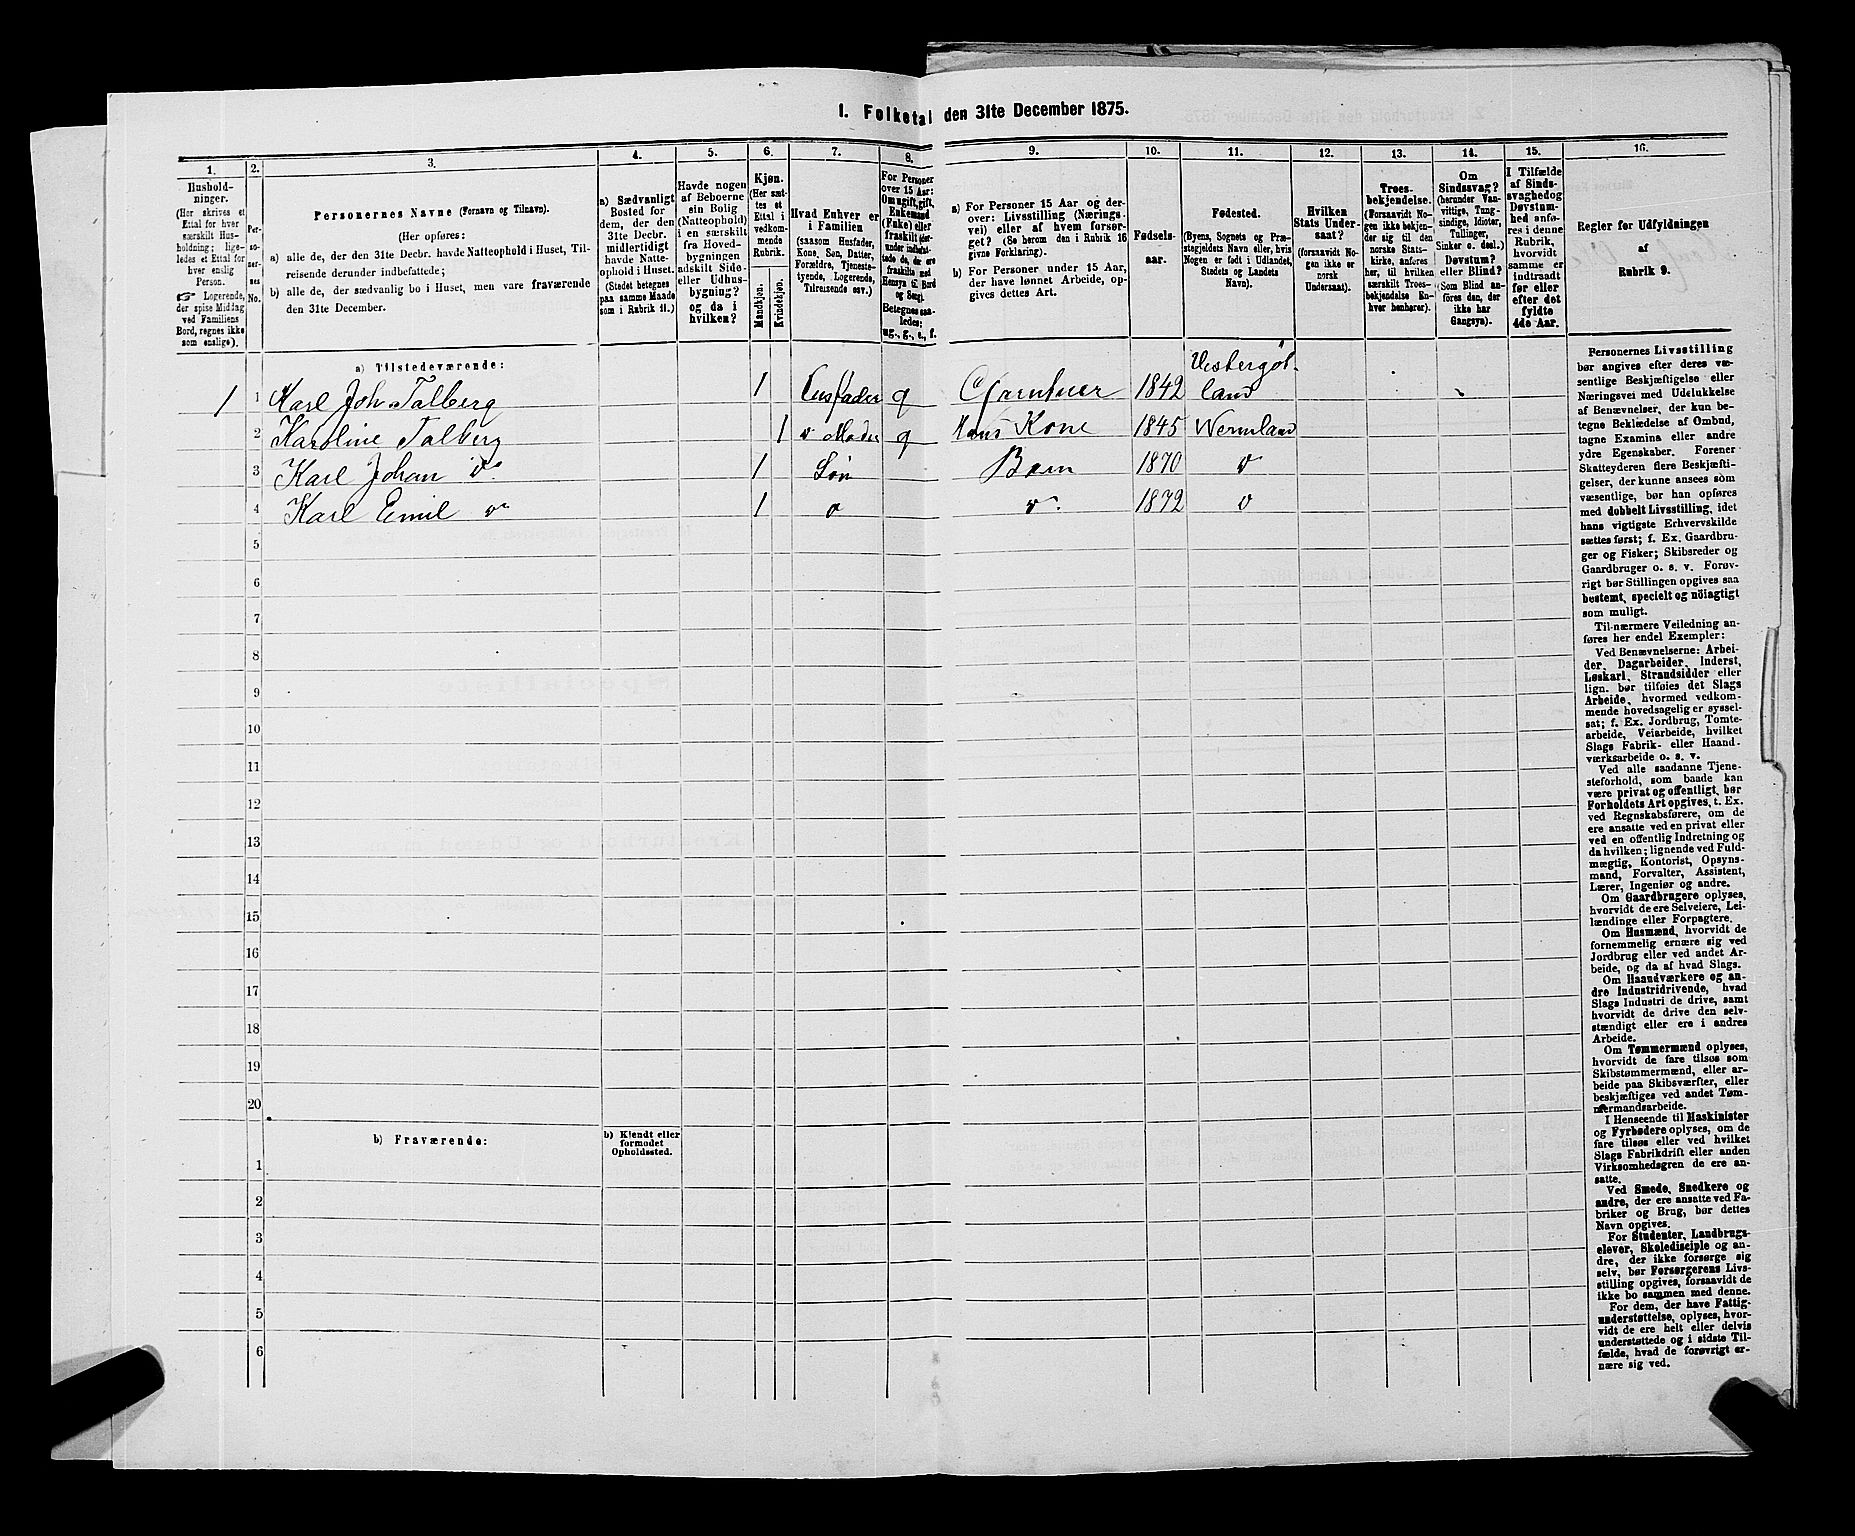 1. Folketal den 31te December 1875.
1.
2.
3.
4.
5.
6.
7.
8.
9.
10.
11.
12.
13.
14.
15.
16.
Hushold-
ninger.
(Her skrives et
Ettal for hver
særskilt Hus-
holdning; lige-
ledes et Ettal for
hver enslig
Person.
☞ Logerende,
der spise Middag
ved Familiens
Bord, regnes ikke
som enslige).
Per-
so-
ner-
nes
No.
Personernes Navne (Fornavn og Tilnavn).
(Her opføres:
a) alle de, der den 31te Decbr. havde Natteophold i Huset, Til-
reisende derunder indbefattede;
b) alle de, der sædvanlig bo i Huset, men vare fraværende
den 31te December.
a) Sædvanligt
Bosted for
dem, der den
31te Decbr.
midlertidigt
havde Natte-
ophold i Huset.
(Stedet betegnes
paa samme Maade
som i Rubrik 11.)
Havde nogen
af Beboerne
sin Bolig
(Natteophold)
i en særskilt
fra Hoved-
bygningen
adskilt Side-
eller Udhus-
bygning?
og da i
hvilken?
Kjøn.
(Her sæt-
tes et
Ettal i
vedkom-
mende
Rubrik.
Mandkjøn.
Kvindekjøn.
Hvad Enhver er
i Familien
(saasom Husfader,
Kone, Søn, Datter,
Forældre, Tjeneste-
tyende, Logerende,
Tilreisende osv.)
For Personer
over 15 Aar:
Om ugift, gift,
Enkemand
(Enke) eller
fraskilt
Betegnes saa-
ledes:
ug., g., e., f.
a) For Personer 15 Aar og der-
over: Livsstilling (Nærings-
vei) eller af hvem forsør-
get? (Se herom den i Rubrik 16
givne Forklaring).
b) For Personer under 15 Aar,
der have lønnet Arbeide, op-
gives dettes Art.
Fødsels-
aar.
Fødested.
(Byens, Sognets og Præ-
stegjeldets Navn eller, hvis
Nogen er født i Udlandet,
Stedets og Landets
Navn).
Hvilken
Stats Under-
saat?
(forsaavidt No-
gen ikke er
norsk
Undersaat).
Troes-
bekjendelse.
(Forsaavidt No-
gen ikke bekjen-
der sig til den
norske Stats-
kirke, anføres
her, til hvilken
særskilt Troes-
bekjendelse En-
hver henhører).
Om
Sindssvag?
(herunder Van-
vittige, Tung-
sindige, Idioter,
Tullinger,
Sinker o. desl.)
Døvstum?
eller Blind?
(Som Blind an-
føres den, der
ikke har
Gangsyn).
I Tilfælde
af Sinds-
svaghed og
Døvstum-
hed anfø-
res i denne
Rubrik,
hvorvidt
samme er
indtraadt
før eller
efter det
fyldte
4de Aar.
Regler for Udfyldningen
af
Rubrik 9.
a) Tilstedeværende:
1 1 Karl Joh Talberg 1 Husfader g Garntuer 1842 Vestergöt-
land
2 Karoline Talberg 1 v Moder g Hans Kone 1845 Wermland
3 Karl Johan do 1 Søn Barn 1870 v
4 Karl Emil do 1 v do 1872 v
5
6
7
8
9
10
11
12
13
14
15
16
17
18
19
20
b) Fraværende:
b) Kjendt eller
formodet
Opholdssted.
1
2
3
4
5
6
Personernes Livsstilling
bør angives efter deres væ-
sentlige Beskjæftigelse eller
Næringsvei med Udelukkelse
af Benævnelser, der kun be-
tegne Beklædelse af Ombud,
tagne Examina eller andre
ydre Egenskaber. Forener
Skatteyderen flere Beskjæfti-
gelser, der kunne ansees som
væsentlige, bør han opføres
med dobbelt Livsstilling, idet
hans vigtigste Erhvervskilde
sættes først; f. Ex. Gaardbru-
ger og Fisker; Skibsreder og
Gaardbruger o. s. v. Forøv-
rigt bør Stillingen opgives saa
bestemt, specielt og nöiagtigt
som muligt.
Til nærmere Veiledning an-
føres her endel Exempler:
Ved Benævnelserne: Arbei-
der, Dagarbeider, Inderst,
Løskarl, Strandsidder eller
lign. bør tilføies det Slags
Arbeide, hvormed vedkom-
mende hovedsagelig er syssel-
sat; f. Ex. Jordbrug, Tomte-
arbeide, Veiarbeide, hvilket
Slags Fabrik- eller Haand-
værksarbeide o. s. v.
Ved alle saadanne Tjene-
steforhold, som baade kan
være privat og offentligt, bør
Forholdets Art opgives, t. Ex.
ved Regnskabsførere, om de
ere ansatte ved en privat eller
ved en offentlig Indretning og
da hvilken; lignende ved Fuld-
mægtig, Kontorist, Opsyns-
mand, Forvalter, Assistent,
Lærer, Ingeniør og andre.
Om Gaardbrugere oplyses,
hvorvidt de ere Selveiere, Lei-
lændinge eller Forpagtere.
Om Husmænd, hvorvidt de
fornemmelig ernære sig ved
Jordbrug eller ved andet Ar-
beide, og da af hvad Slags.
Om Haandværkere og an-
dre Industridrivende, hvad
Slags Industri de drive, samt
hvorvidt de drive den selv-
stændigt eller ere i andres
Arbeide.
Om Tømmermænd oplyses,
hvorvidt de fare tilsøs som
Skibstømmermænd, eller ar-
beide paa Skibsværfter, eller
beskjæftiges ved andet Tøm-
mermandsarbeide.
I Henseende til Maskinister
og Fyrbødere oplyses, om de
fare tilsøs eller ved hvilket
Slags Fabrikdrift eller anden
Virksomhedsgren de ere an-
satte.
Ved Smede, Snedkere og
andre, der ere ansatte ved Fa-
briker og Brug, bør dettes
Navn opgives.
For Studenter, Landbrugs-
elever, Skoledisciple og an-
dre, der ikke forsørge sig
selv, bør Forsørgerens Livs-
stilling opgives, forsaavidt de
ikke bo sammen med denne.
For dem, der have Fattig-
understøttelse, oplyses, hvor-
vidt de ere helt eller delvis
understøttede og i sidste Til-
fælde, hvad de forøvrigt er-
nære sig ved.